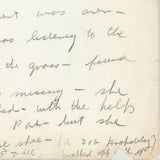 nt was over-
as listening to the
the grass - found
s missing - she
ed - with the help
Pat - but she
e shoe - (a dog probably
walked off